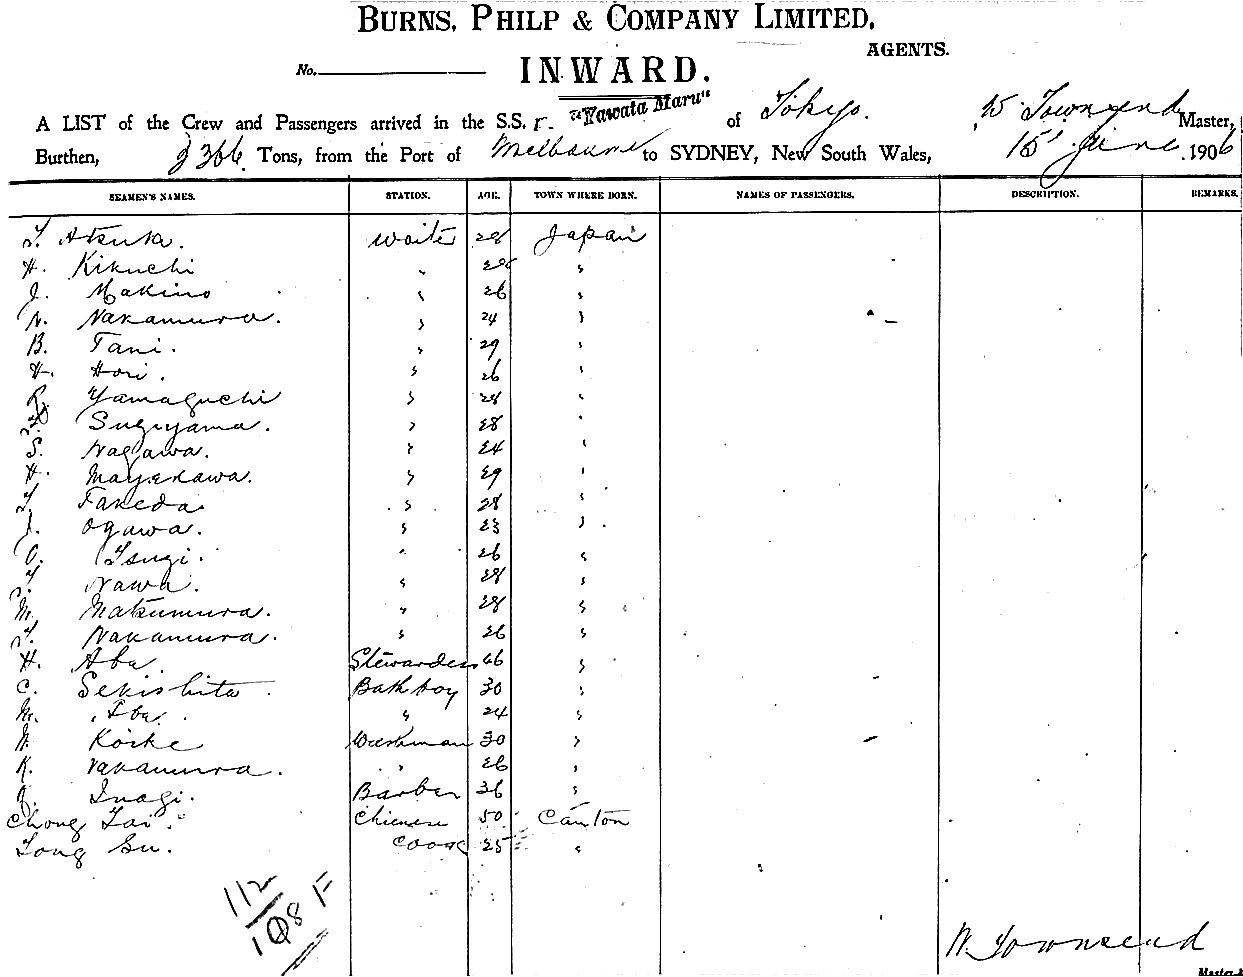 BURNS, PHILP & COMPANY LIMITED,
AGENTS.
No. INWARD.
A LIST of the Crew and Passengers arrived in the S.S. "Yawata Maru" of Tokyo. W Townsend Master,
Burthen, Tons, from the Port of Melbourne to SYDNEY, New South Wales, 15 June 1906
SEAMEN'S NAMES. STATION. AGE. TOWN WHERE BORN. NAMES OF PASSENGERS. DESCRIPTION. REMARKS.
Waiter 28 Japan
H. Kikuchi " 28 "
J. Makino " 26 "
N. Nakamura. " 24 "
B. Tani. " 29 "
H. Hori. " 26 "
R. Yamaguchi " 28 "
Sugiyama. " 28 "
S. Nagawa. " 24 "
H. Mayekawa. " 29 "
T. Takeda. " 28 "
J. Ogawa. " 23 "
O. Tsugi. " 26 "
T. Nawa. " 28 "
M. Matsumura. " 28 "
T. Nakamura. " 26 "
H. Abe. Stewardess 46 "
C. Sekishita. Bath boy 30 "
M. " 24 "
N. Koike 30 "
K. Nakamura. " 26 "
J. Inagi. Barber 36 "
Chong Tai. Chienese 50 Canton
Tong Su. Cook 25 "
112
108 F
W. Townsend
Master.